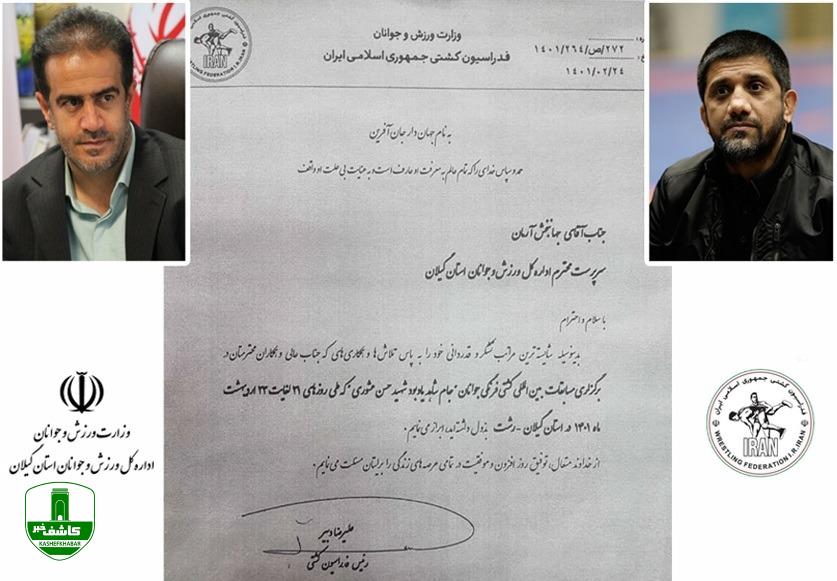 وزارت ورزش و جوانان
فدراسیون کشتی جمهوری اسلامی ایران
۱۴۰۱/۲۶۴/ص/۲۷۲
۱۴۰۱/۰۲/۲۴
IRAN
WRESTLING FEDERATION I.R.IRAN
به نام جهان دار جان آفرین
حمد و سپاس خدای را که تمام عالم به معرفت او عارف است و به عنایت بی علت او واقف
جناب آقای جهانبخش آرمان
سرپرست محترم اداره کل ورزش و جوانان استان گیلان
با سلام و احترام
بدینوسیله شایسته ترین مراتب تشکر و قدردانی خود را به پاس تلاش ها و همکاری های که جناب عالی و همکاران محترمتان در
برگزاری مسابقات بین المللی کشتی فرنگی جوانان "جام شاهد یادبود شهید حسن عشوری" که طی روزهای ۲۱ لغایت ۲۳ اردیبهشت
ماه ۱۴۰۱ در استان گیلان - رشت بذول داشته اید، ابراز می نمایم.
از خداوند متعال، توفیق روز افزون و موفقیت در تمامی عرصه های زندگی را برایتان مسئلت می نمایم.
علیرضا دبیر
رئیس فدراسیون کشتی
وزارت ورزش و جوانان
اداره کل ورزش و جوانان استان گیلان
کاشف خبر
KASHEFKHABAR
فدراسیون کشتی جمهوری اسلامی ایران
IRAN
WRESTLING FEDERATION I.R.IRAN